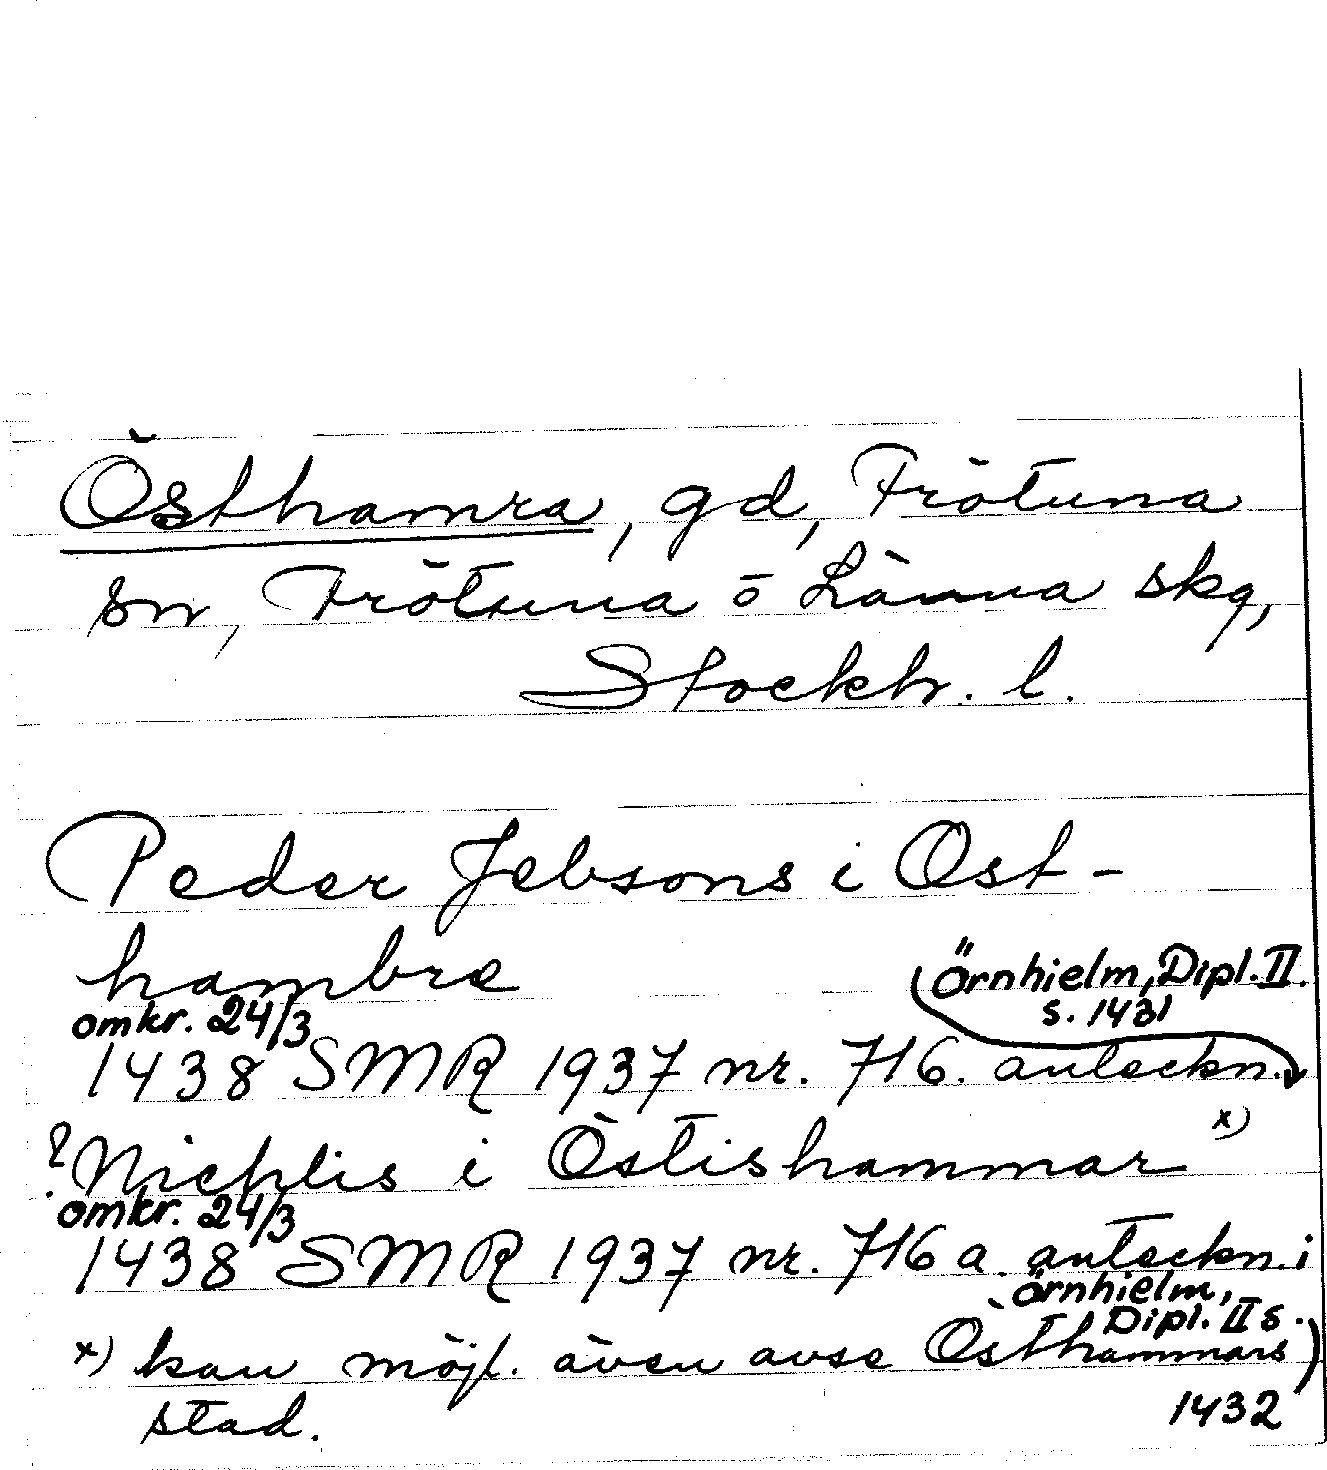 Östhamra, gd, Frötuna
sn, Frötuna o Länna skg,
Stockh. l.
Peder Jebsons i Öst-
hambre
örnhielm, Dipl. II.
s. 1431
omkr. 24/3
1438 SMR 1937 nr. 716. anteckn.
? Nichlis i Östishammar x)
omkr. 24/3
1438 SMR 1937 nr. 716 a. anteckn. i
örnhielm,
Dipl. II s.
1432
x) kan möjl. även avse Östhammars
stad.